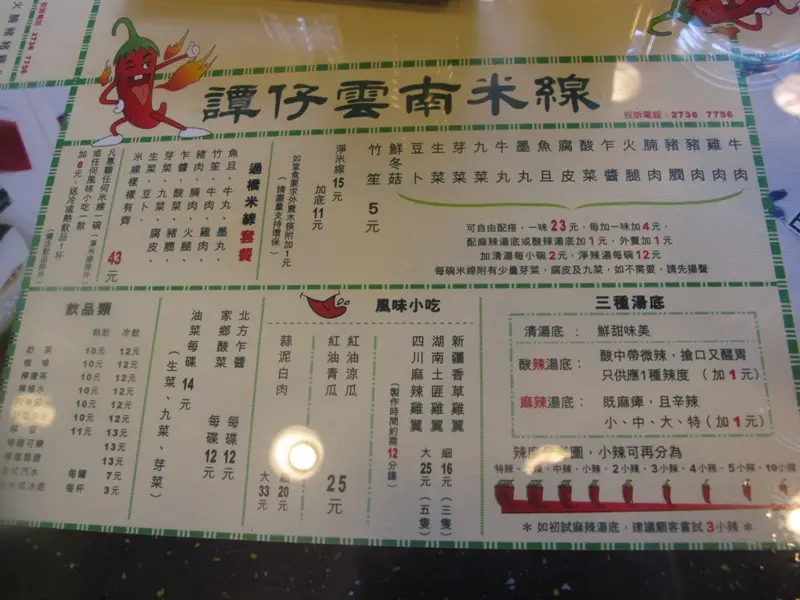 譚仔雲南米線
投訴電話：2736 7756
牛肉
雞肉
豬肉
豬膶
腩肉
火腿
乍醬
酸菜
腐皮
魚旦
墨丸
牛丸
九菜
芽菜
生菜
豆卜
鮮冬菇
竹笙 5元
可自由配搭，一味23元、每加一味加4元，
配麻辣湯底或酸辣湯底加1元，外賣加1元
加清湯每小碗2元，淨辣湯每碗12元
每碗米線附有少量芽菜，腐皮及九菜，如不需要，請先揚聲
淨米線15元
加底11元
如堂食要求外賣木筷附加1元
（請盡量支持環保）
過橋米線套餐
魚旦、牛丸、墨丸、
竹笙、牛肉、雞肉、
豬肉、腩肉、火腿、
乍醬、酸菜、豬膶、
芽菜、九菜、腐皮、
生菜、豆卜、
米線樣樣有齊
43元
凡惠顧任何米線一碗（淨米線除外）
或任何風味小吃一款
加6元，送冷或熱飲品1杯
三種湯底
清湯底： 鮮甜味美
酸辣湯底： 酸中帶微辣，搶口又醒胃
只供應1種辣度（加1元）
麻辣湯底： 既麻痺，且辛辣
小、中、大、特（加1元）
小辣可再分為
特辣、
中辣、小辣、2小辣、3小辣、4小辣、5小辣、10小辣
＊如初試麻辣湯底，建議顧客嘗試3小辣＊
風味小吃
新疆香草雞翼
湖南土匪雞翼
四川麻辣雞翼
（製作時間約需12分鐘）
細16元（三隻）
大25元（五隻）
紅油涼瓜
紅油青瓜
25元
蒜泥白肉
細20元
大33元
北方乍醬 每碟12元
家鄉酸菜 每碟12元
油菜每碟14元
（生菜、九菜、芽菜）
飲品類
熱飲 冷飲
奶茶 10元 12元
咖啡 10元 12元
檸檬茶 10元 12元
檸檬水 10元 12元
10元 12元
10元 12元
11元 13元
檸檬可樂 13元
13元
各式汽水 每罐 7元
每杯 3元